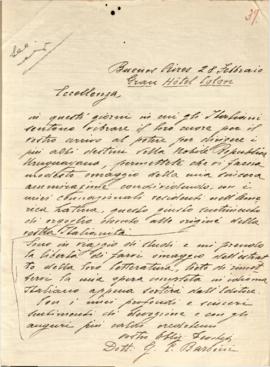 Buenos Aires 28 Febbraio
Gran Hôtel Colon
Eccellenza,
in questi giorni in cui gl'Italiani
sentono vibrare il loro cuore per il
vostro arrivo al potere per
più alti destini della Nobile Repubblica
Uruguayana, permettete che vi faccia
modesto omaggio della mia sincera
ammirazione condividendo, con i
miei connazionali residenti nell'Ame-
rica Latina, questo giusto sentimento
di orgoglio alla origine della
vostra Italianità.
Sono in viaggio di studi e mi prendo
la libertà di farvi omaggio dell'estrat-
to della loro letteratura, lieto di
la mia opera in idioma
Italiano appena sortirà dall'Editore.
Con i miei profondi e sinceri
sentimenti di devozione e con gli
auguri più caldi credetemi
vostro Obbl.
Dott. G. Barbini